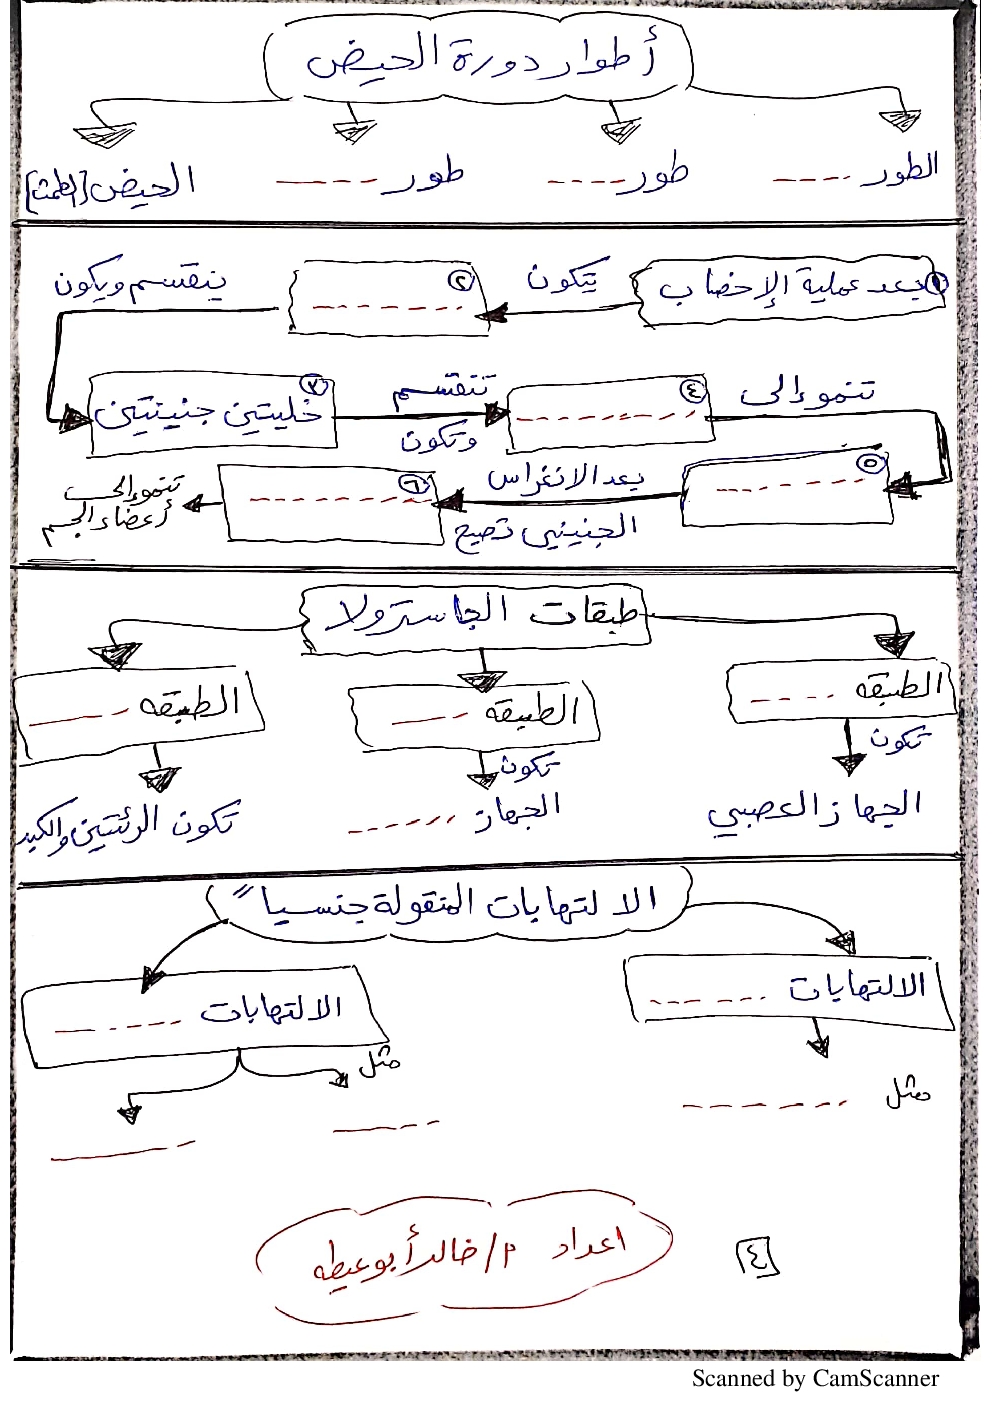 أطوار دورة الحيض
الطور ----
طور ----
طور ----
الحيض [الطمث]
① بعد عملية الإخصاب
يتكون
② ------
ينقسم ويكون
③ خليتين جنينتين
تنقسم
وتكون
④ -------
تنمو إلى
⑤ ------
بعد الانغراس
الجنيني تصبح
⑥ --------
تنمو إلى
أعضاء الجسم
طبقات الجاسترولا
الطبقه ----
الطبقه ---
الطبقه ---
تكون
تكون
الجهاز العصبي
الجهاز ------
تكون الرئتين والكبد
الالتهابات المنقولة جنسياً
الالتهابات ------
الالتهابات -----
مثل
مثل
------
----
-----
اعداد م/خالد أبوعيطه
٤
Scanned by CamScanner